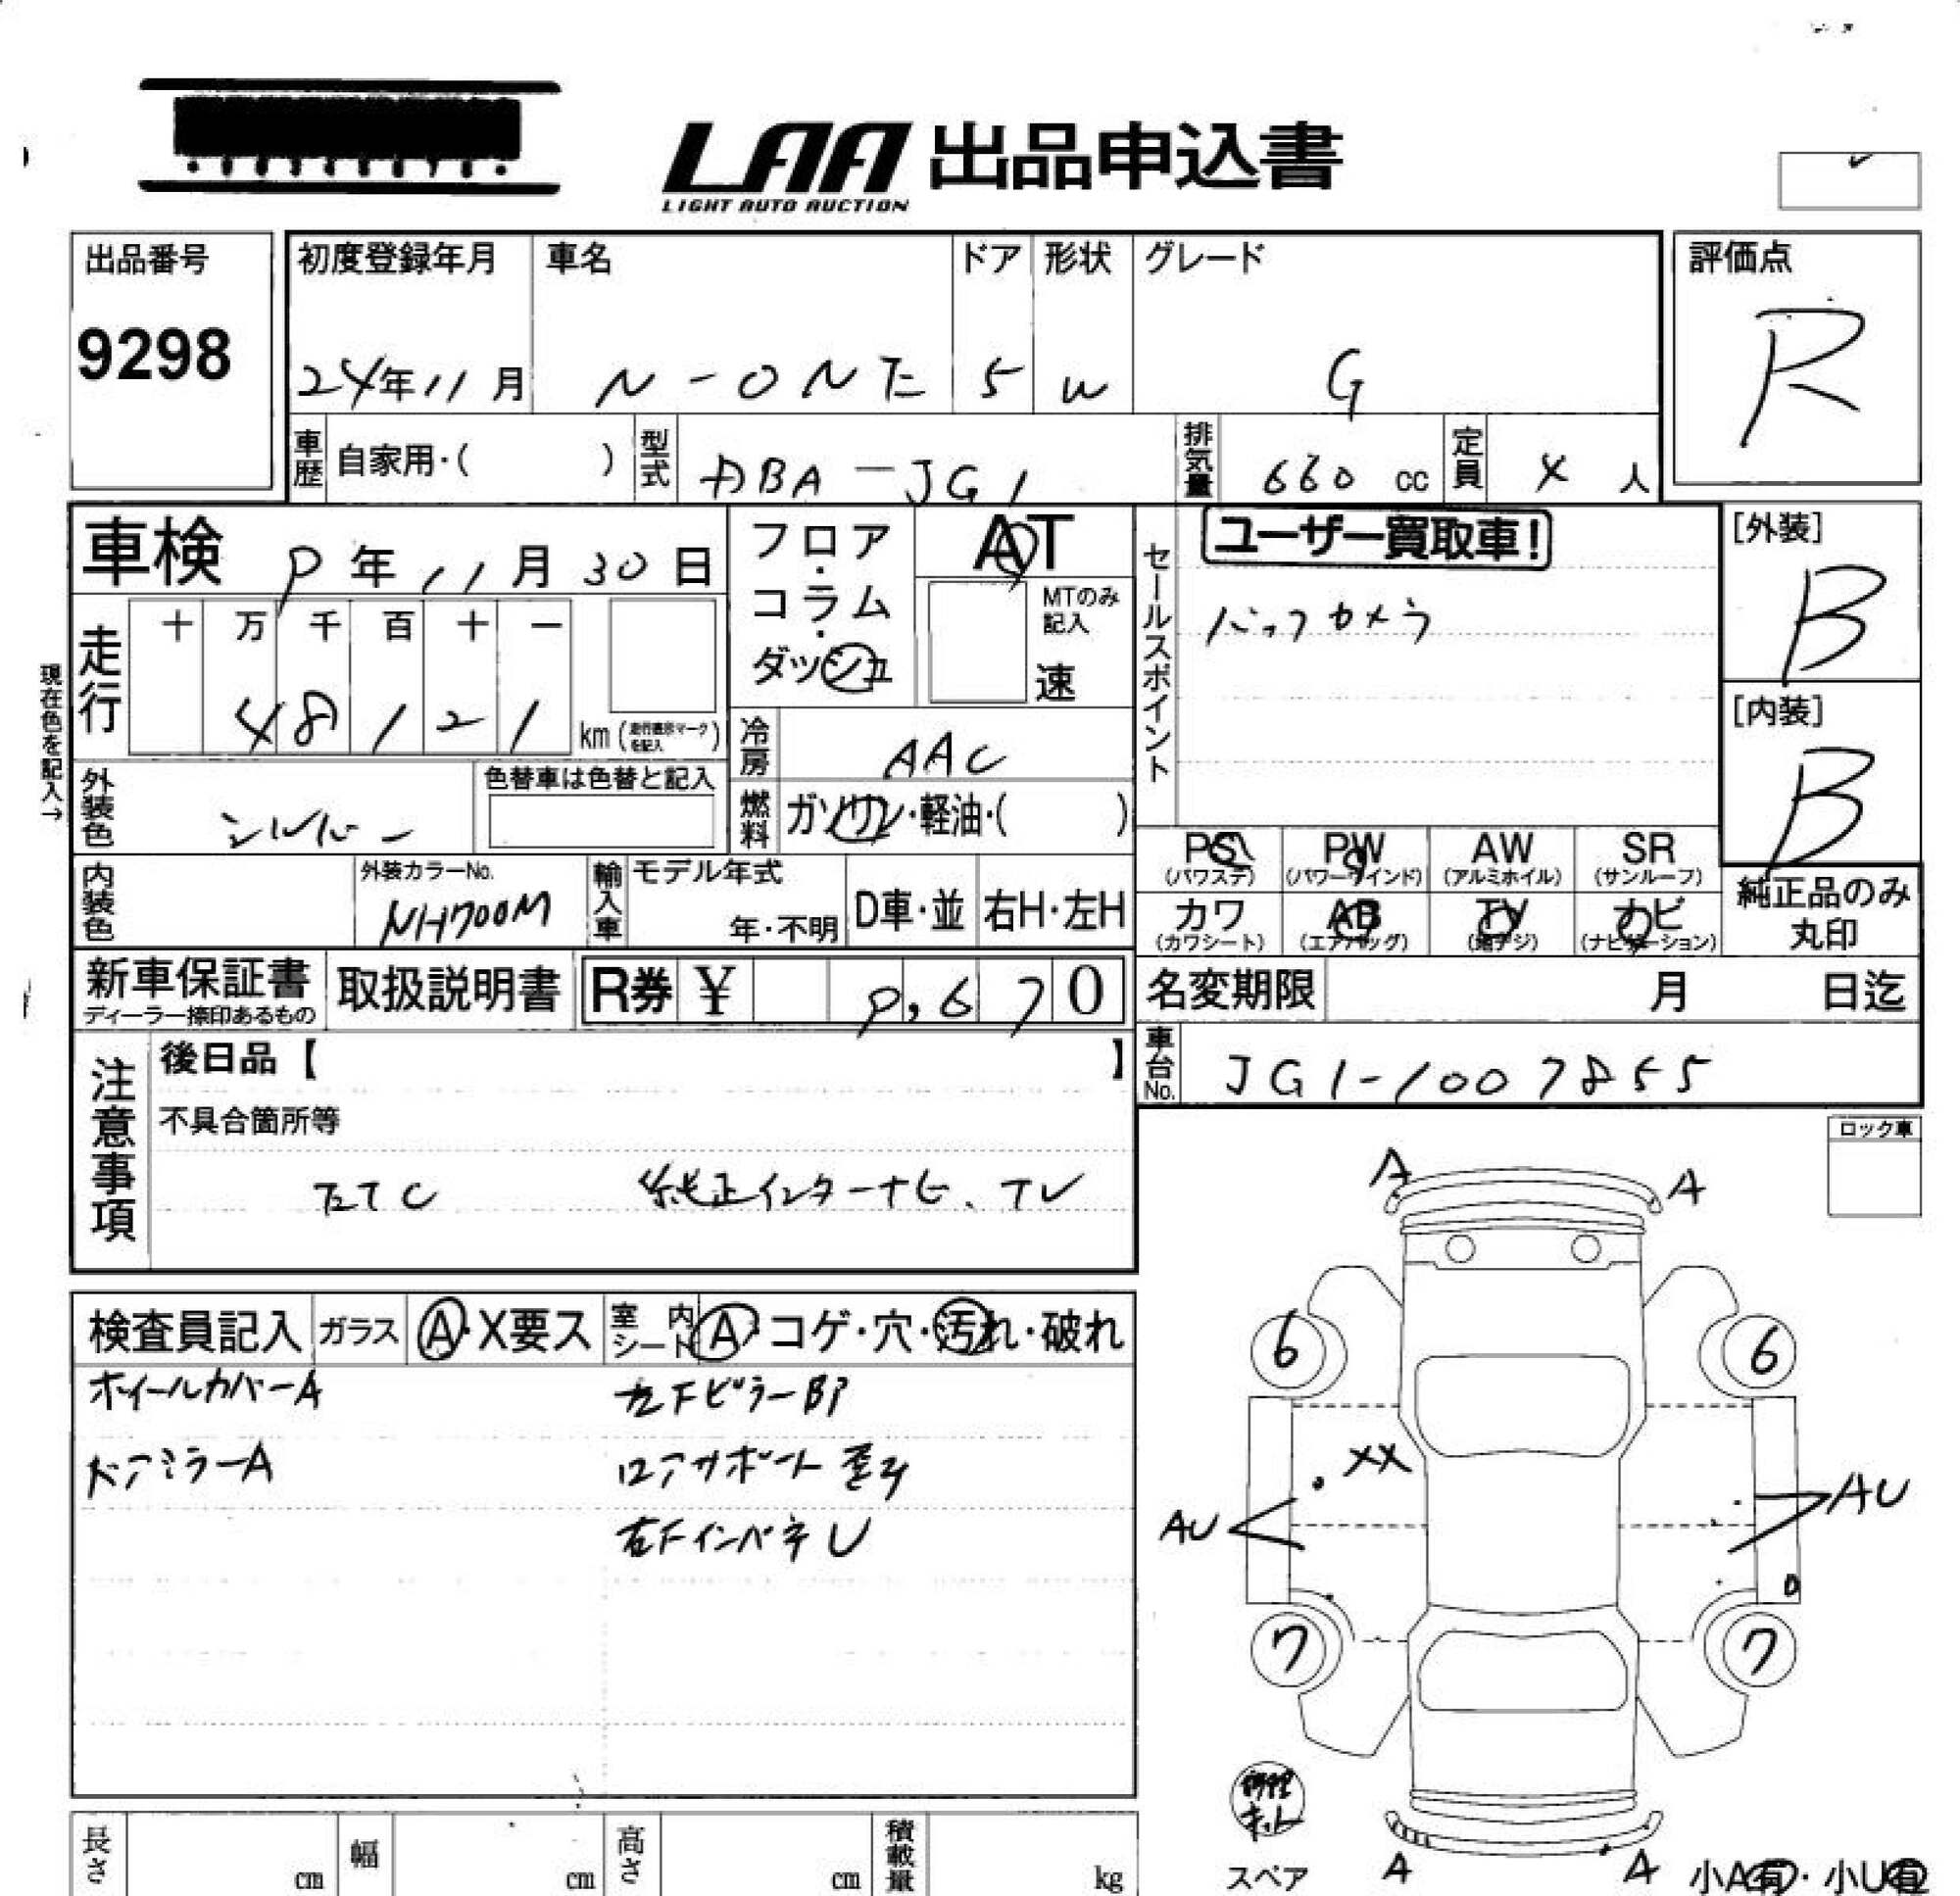 LAA 出品申込書
LIGHT AUTO AUCTION
出品番号
9298
初度登録年月
24年11月
車名
N-ONE
ドア
5
形状
W
グレード
G
評価点
R
車歴
自家用・( )
型式
DBA-JG1
排気量
660 cc
定員
4 人
車検 9年11月30日
フロア・コラム・ダッシュ
AT
MTのみ記入
速
セールスポイント
ユーザー買取車!
バックカメラ
[外装]
B
[内装]
B
現在色を記入→
走行
十 万 千 百 十 一
4 8 1 2 1
km (走行表示マークを記入)
冷房
AAC
燃料
ガソリン・軽油・( )
外装色
シルバー
色替車は色替と記入
内装色
外装カラーNo.
NH700M
輸入車
モデル年式
年・不明
D車・並
右H・左H
PS
(パワステ)
PW
(パワーウインド)
AW
(アルミホイル)
SR
(サンルーフ)
カワ
(カワシート)
AB
(エアバッグ)
TV
(地デジ)
ナビ
(ナビゲーション)
純正品のみ
丸印
新車保証書
ディーラー捺印あるもの
取扱説明書
R券 ¥ 9,670
名変期限 月 日迄
車台No.
JG1-1007855
注意事項
後日品【 】
不具合箇所等
ETC 純正インターナビ、TV
ロック車
検査員記入
ガラス
A・X要ス
室内シート
A・コゲ・穴・汚れ・破れ
ホイールカバーA
左FピラーBP
ドアミラーA
ロアサポート歪み
右FインパネU
A
A
6
6
XX
AU
AU
7
7
修理キット
スペア
A
A
小A有・小U有
長さ cm
幅 cm
高さ cm
積載量 kg